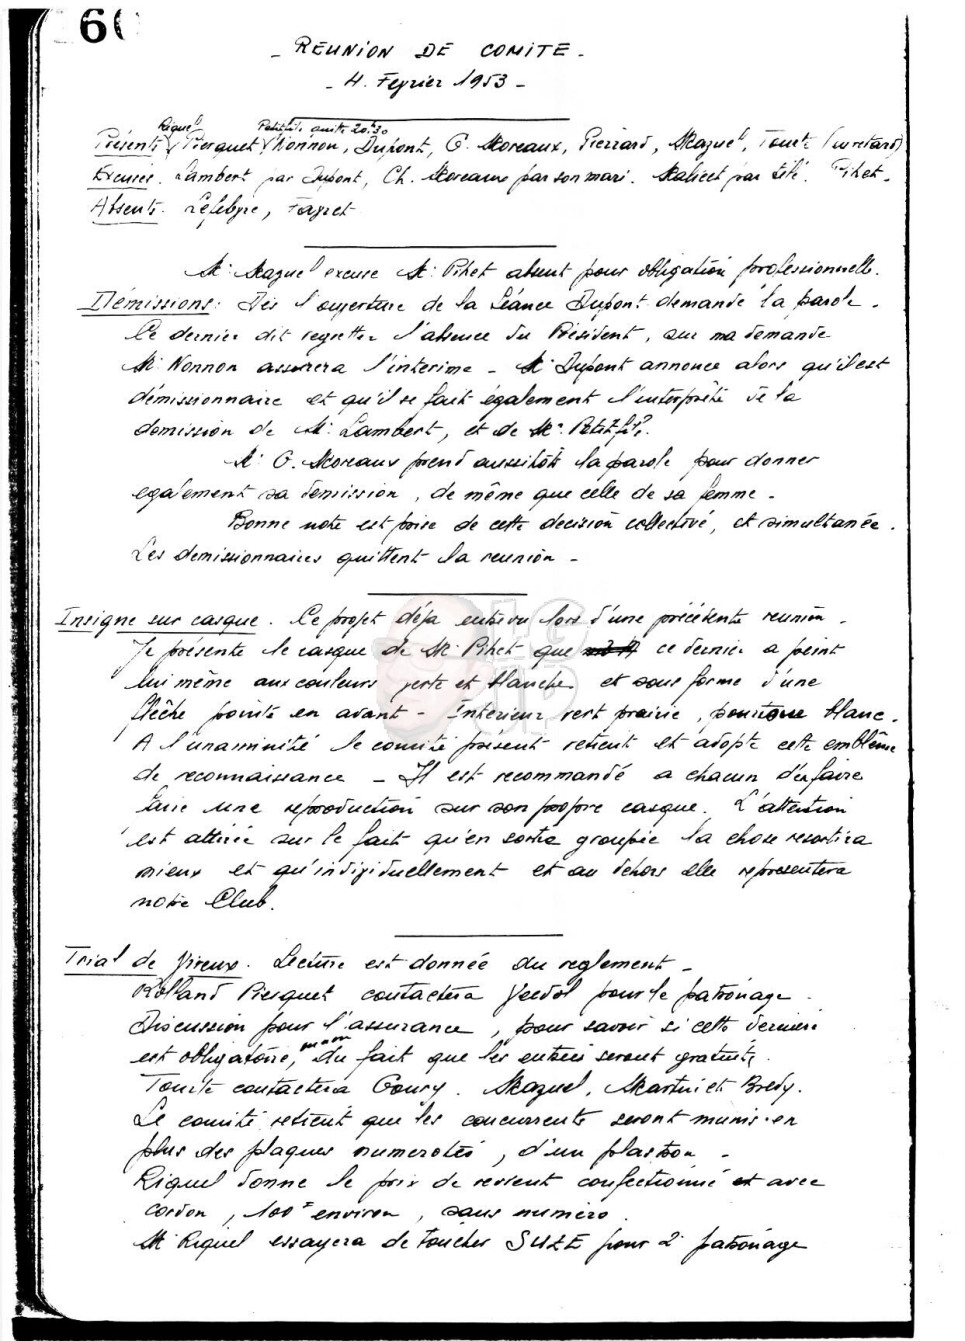 60
- REUNION DE COMITE -
- 4. Fevrier 1953 -
Riquel Petitfils quitte 20h30
Présents Pierquet Nonnon, Dupont, G. Moreaux, Pierrard, Mazuel, Tourte (en retard)
Excusés. Lambert par Dupont, Ch. Moreaux par son mari. par télé. Pihet.
Absents. Lefebvre, Fayret.
Mr Mazuel excuse Mr Pihet absent pour obligation professionnelle.
Démissions: Dès l'ouverture de la séance Dupont demande la parole.
Ce dernier dit regretter l'absence du Président, sur ma demande
Mr Nonnon assurera l'interime - Mr Dupont annonce alors qu'il est
démissionnaire et qu'il se fait également l'interprète de la
demission de Mr Lambert, et de Mr Petitfils.
Mr G. Moreaux prend aussitôt la parole pour donner
egalement sa demission, de même que celle de sa femme -
Bonne note est prise de cette decision collective, et simultanée.
Les demissionnaires quittent la reunion -
Insigne sur casque. Ce projet déja entrevu lors d'une précédente reunion.
Je présente le casque de Mr Pihet que ce dernier a peint
lui même aux couleurs verte et blanche et sous forme d'une
flêche pointe en avant - Intérieur vert prairie, pourtour blanc.
A l'unanimité le comité présent retient et adopte cette emblême
de reconnaissance - Il est recommandé a chacun d'en faire
faire une reproduction sur son propre casque. L'attention
est attirée sur le fait qu'en sortie groupée la chose resortira
mieux et qu'individuellement et au dehors elle representera
notre Club.
LG UP
Trial de Vireux. Lecture est donnée du reglement -
Rolland Pierquet contactera Veedol pour le patronage.
Discussion pour l'assurance, pour savoir si cette derniere
est obligatoire, du fait que les entrées seront gratuites.
Tourte contactera Goury. Mazuel, Martin et Bredy.
Le comité retient que les concurrents seront munis en
plus des plaques numerotées, d'un plastron -
Riquel donne le prix de revient confectionné et avec
cordon, 100F environ, sans numéro.
Mr Riquel essayera de toucher SUZE pour 2e patronage